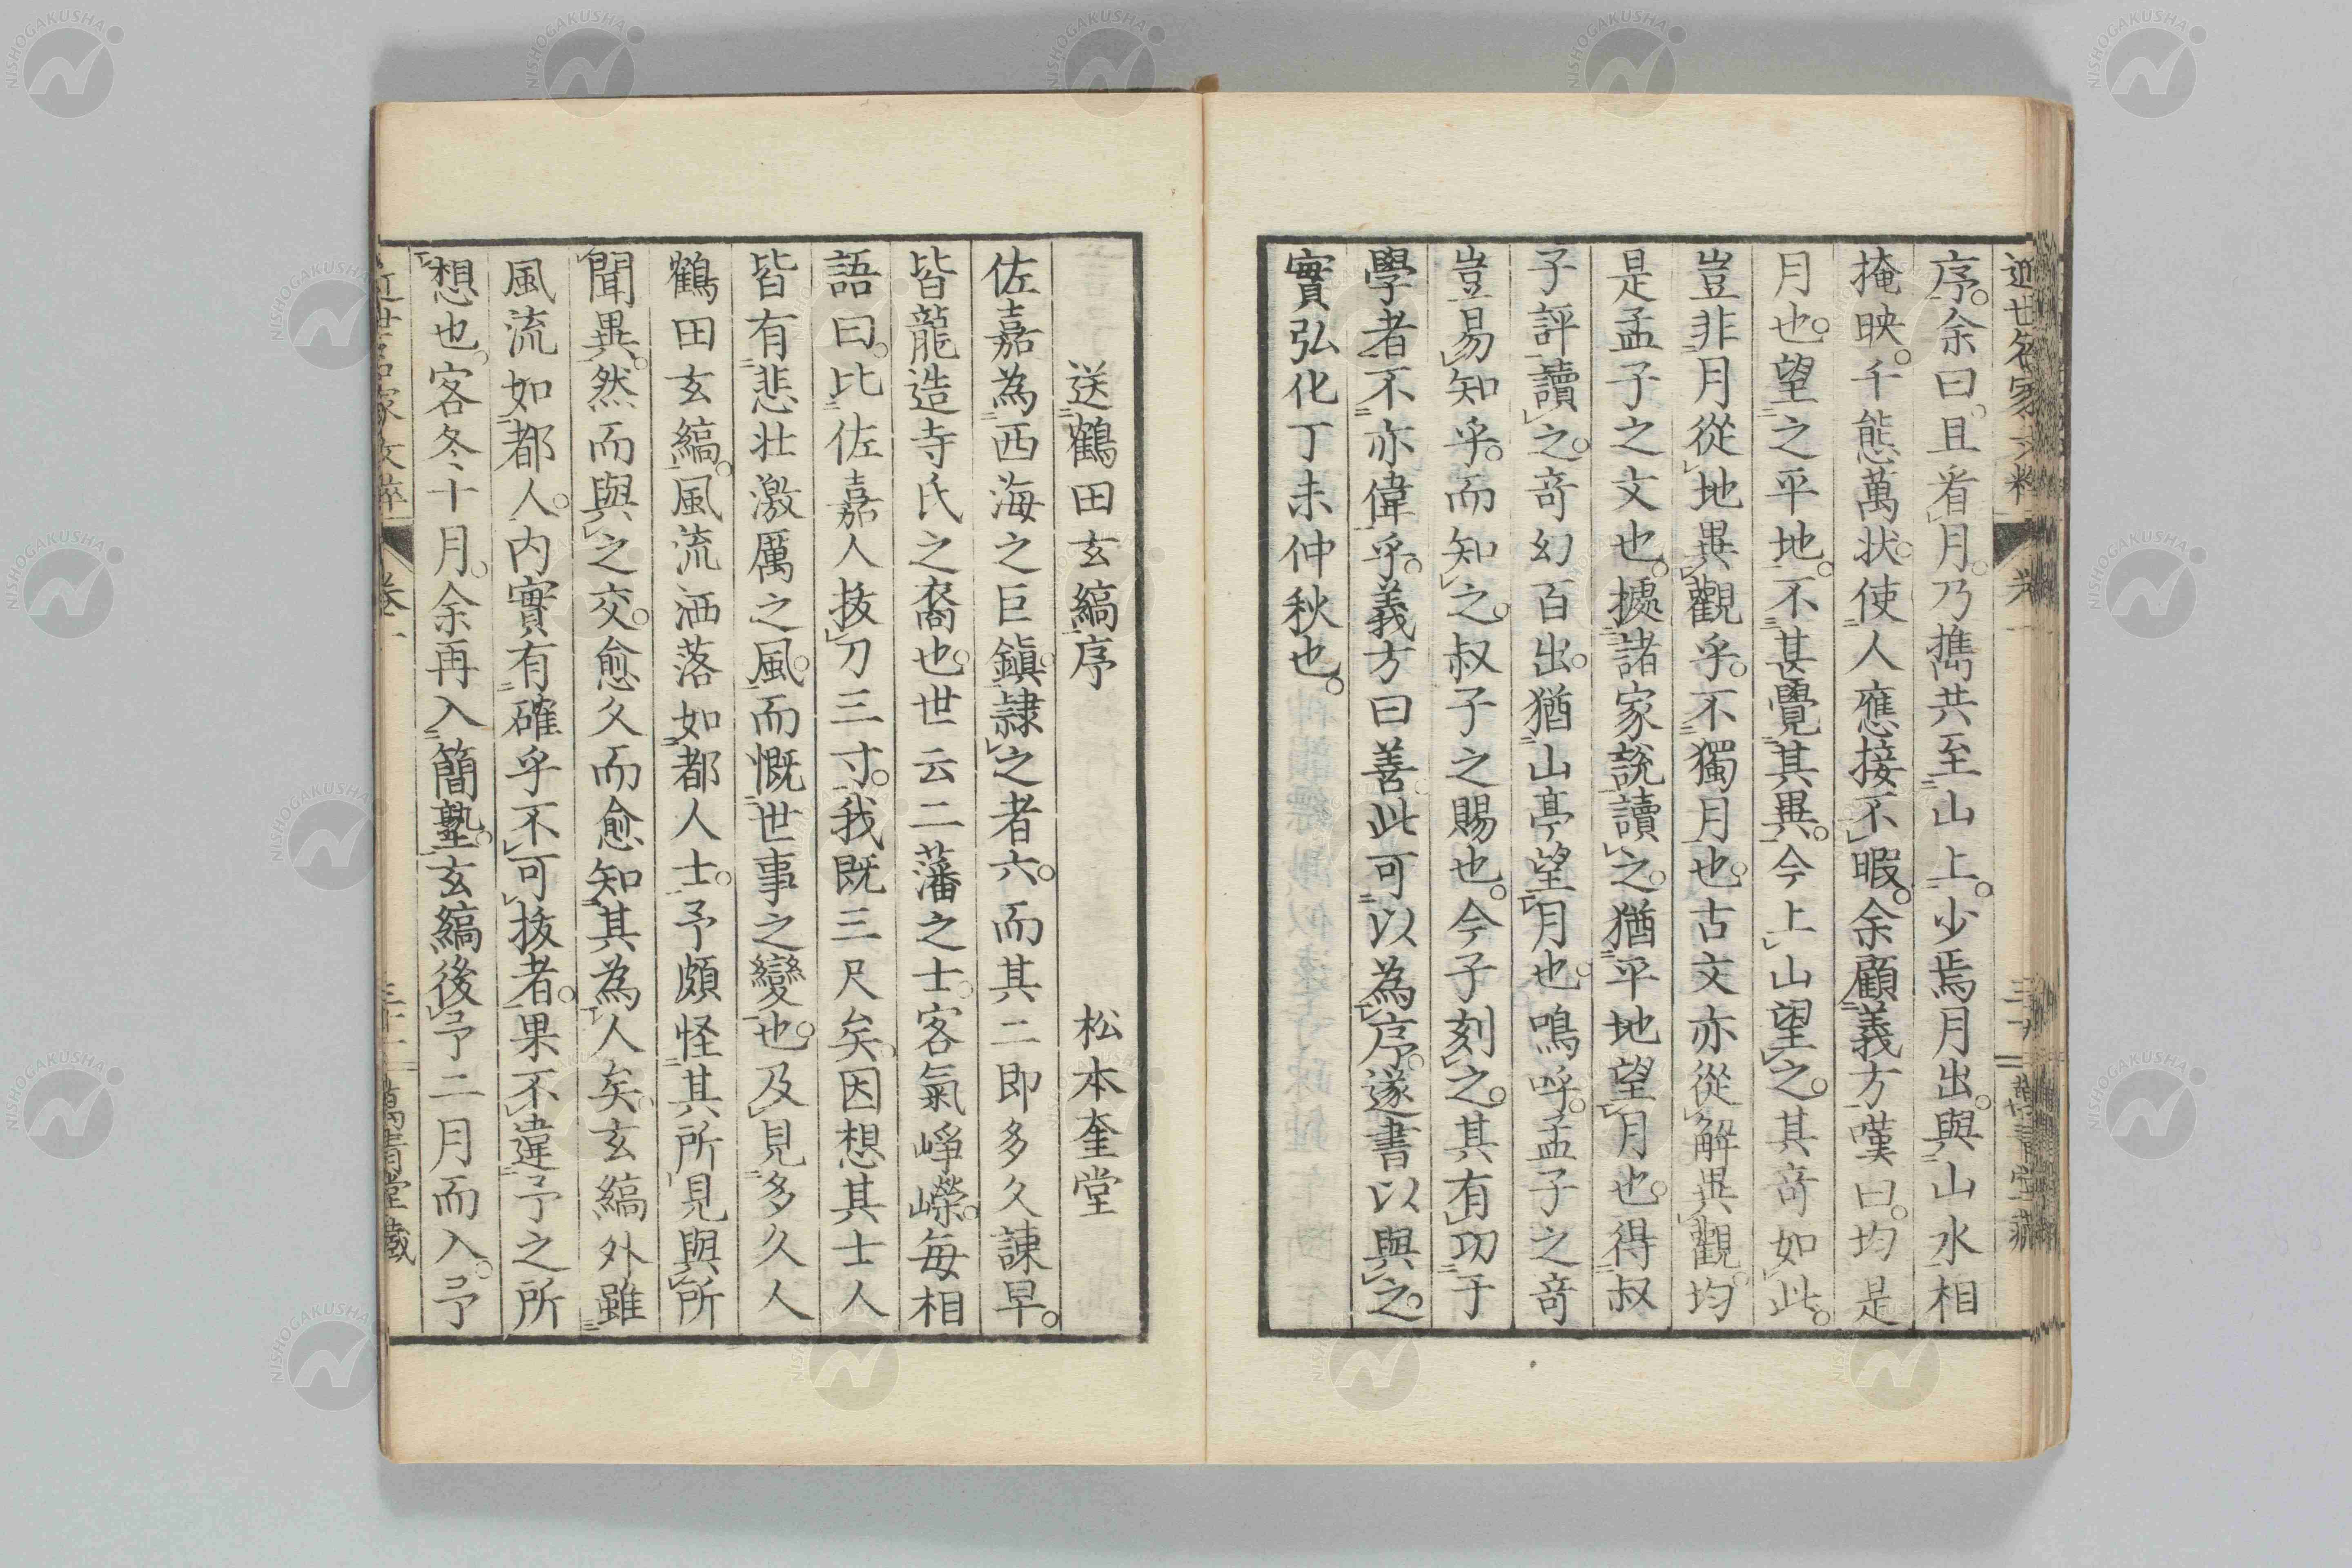 序。余曰。且看月。乃攜共至山上。少焉月出。與山水相
掩映。千態萬狀。使人應接不暇。余顧義方嘆曰。均是
月也。望之平地。不甚覺其異。今上山望之。其奇如此。
豈非月從地異觀乎。不獨月也。古文亦從解異觀。均
是孟子之文也。據諸家說讀之。猶平地望月也。得叔
子評讀之。奇幻百出。猶山亭望月也。嗚呼。孟子之奇
豈易知乎。而知之。叔子之賜也。今子刻之。其有功于
學者不亦偉乎。義方曰善此可以為序。遂書以與之。
實弘化丁未仲秋也。
送鶴田玄縞序 松本奎堂
佐嘉為西海之巨鎮。隸之者六。而其二即多久諫早。
皆龍造寺氏之裔也。世云二藩之士。客氣崢嶸。每相
語曰。比佐嘉人拔刀三寸。我既三尺矣。因想其士人
皆有悲壯激厲之風。而慨世事之變也。及見多久人
鶴田玄縞。風流洒落如都人士。予頗怪其所見與所
聞異。然而與之交。愈久而愈知其為人矣。玄縞外雖
風流如都人。內實有確乎不可拔者。果不違予之所
想也。客冬十月。余再入簡塾。玄縞後予二月而入。予
近世名家文粹 卷一 萬青堂藏
NISHOGAKUSHA